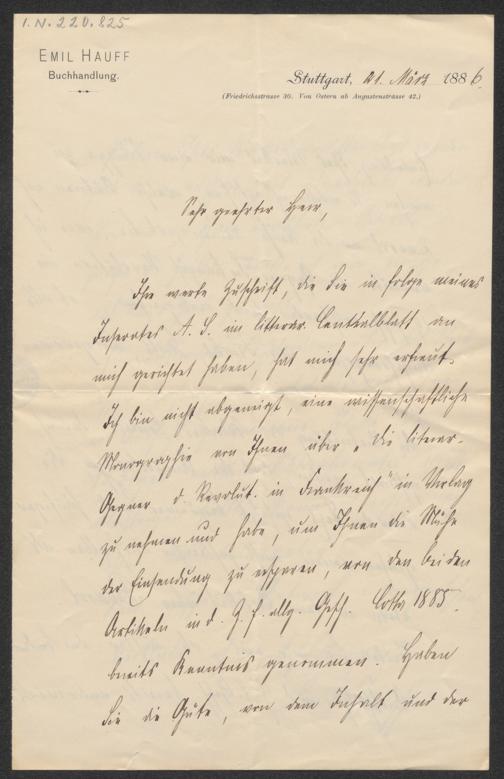 I.N. 220.825
EMIL HAUFF
Buchhandlung.
Stuttgart, 21. März 1886.
(Friedrichsstrasse 30. Von Ostern ab Augustenstrasse 42.)
Sehr geehrter Herr,
Ihre werte Zuschrift, die Sie in folge meines
Inserates A. S. im litterar. Centralblatt an
mich gerichtet haben, hat mich sehr erfreut.
Ich bin nicht abgeneigt, eine wissenschaftliche
Monographie von Ihnen über „die literar.
Gegner d. Revolut. in Frankreich" in Verlag
zu nehmen und habe, um Ihnen die Mühe
der Einsendung zu ersparen, von den beiden
Artikeln in d. Z. f. allg. Gesch. Cotta 1885.
bereits Kenntnis genommen. Haben
Sie die Güte, von dem Inhalt und der